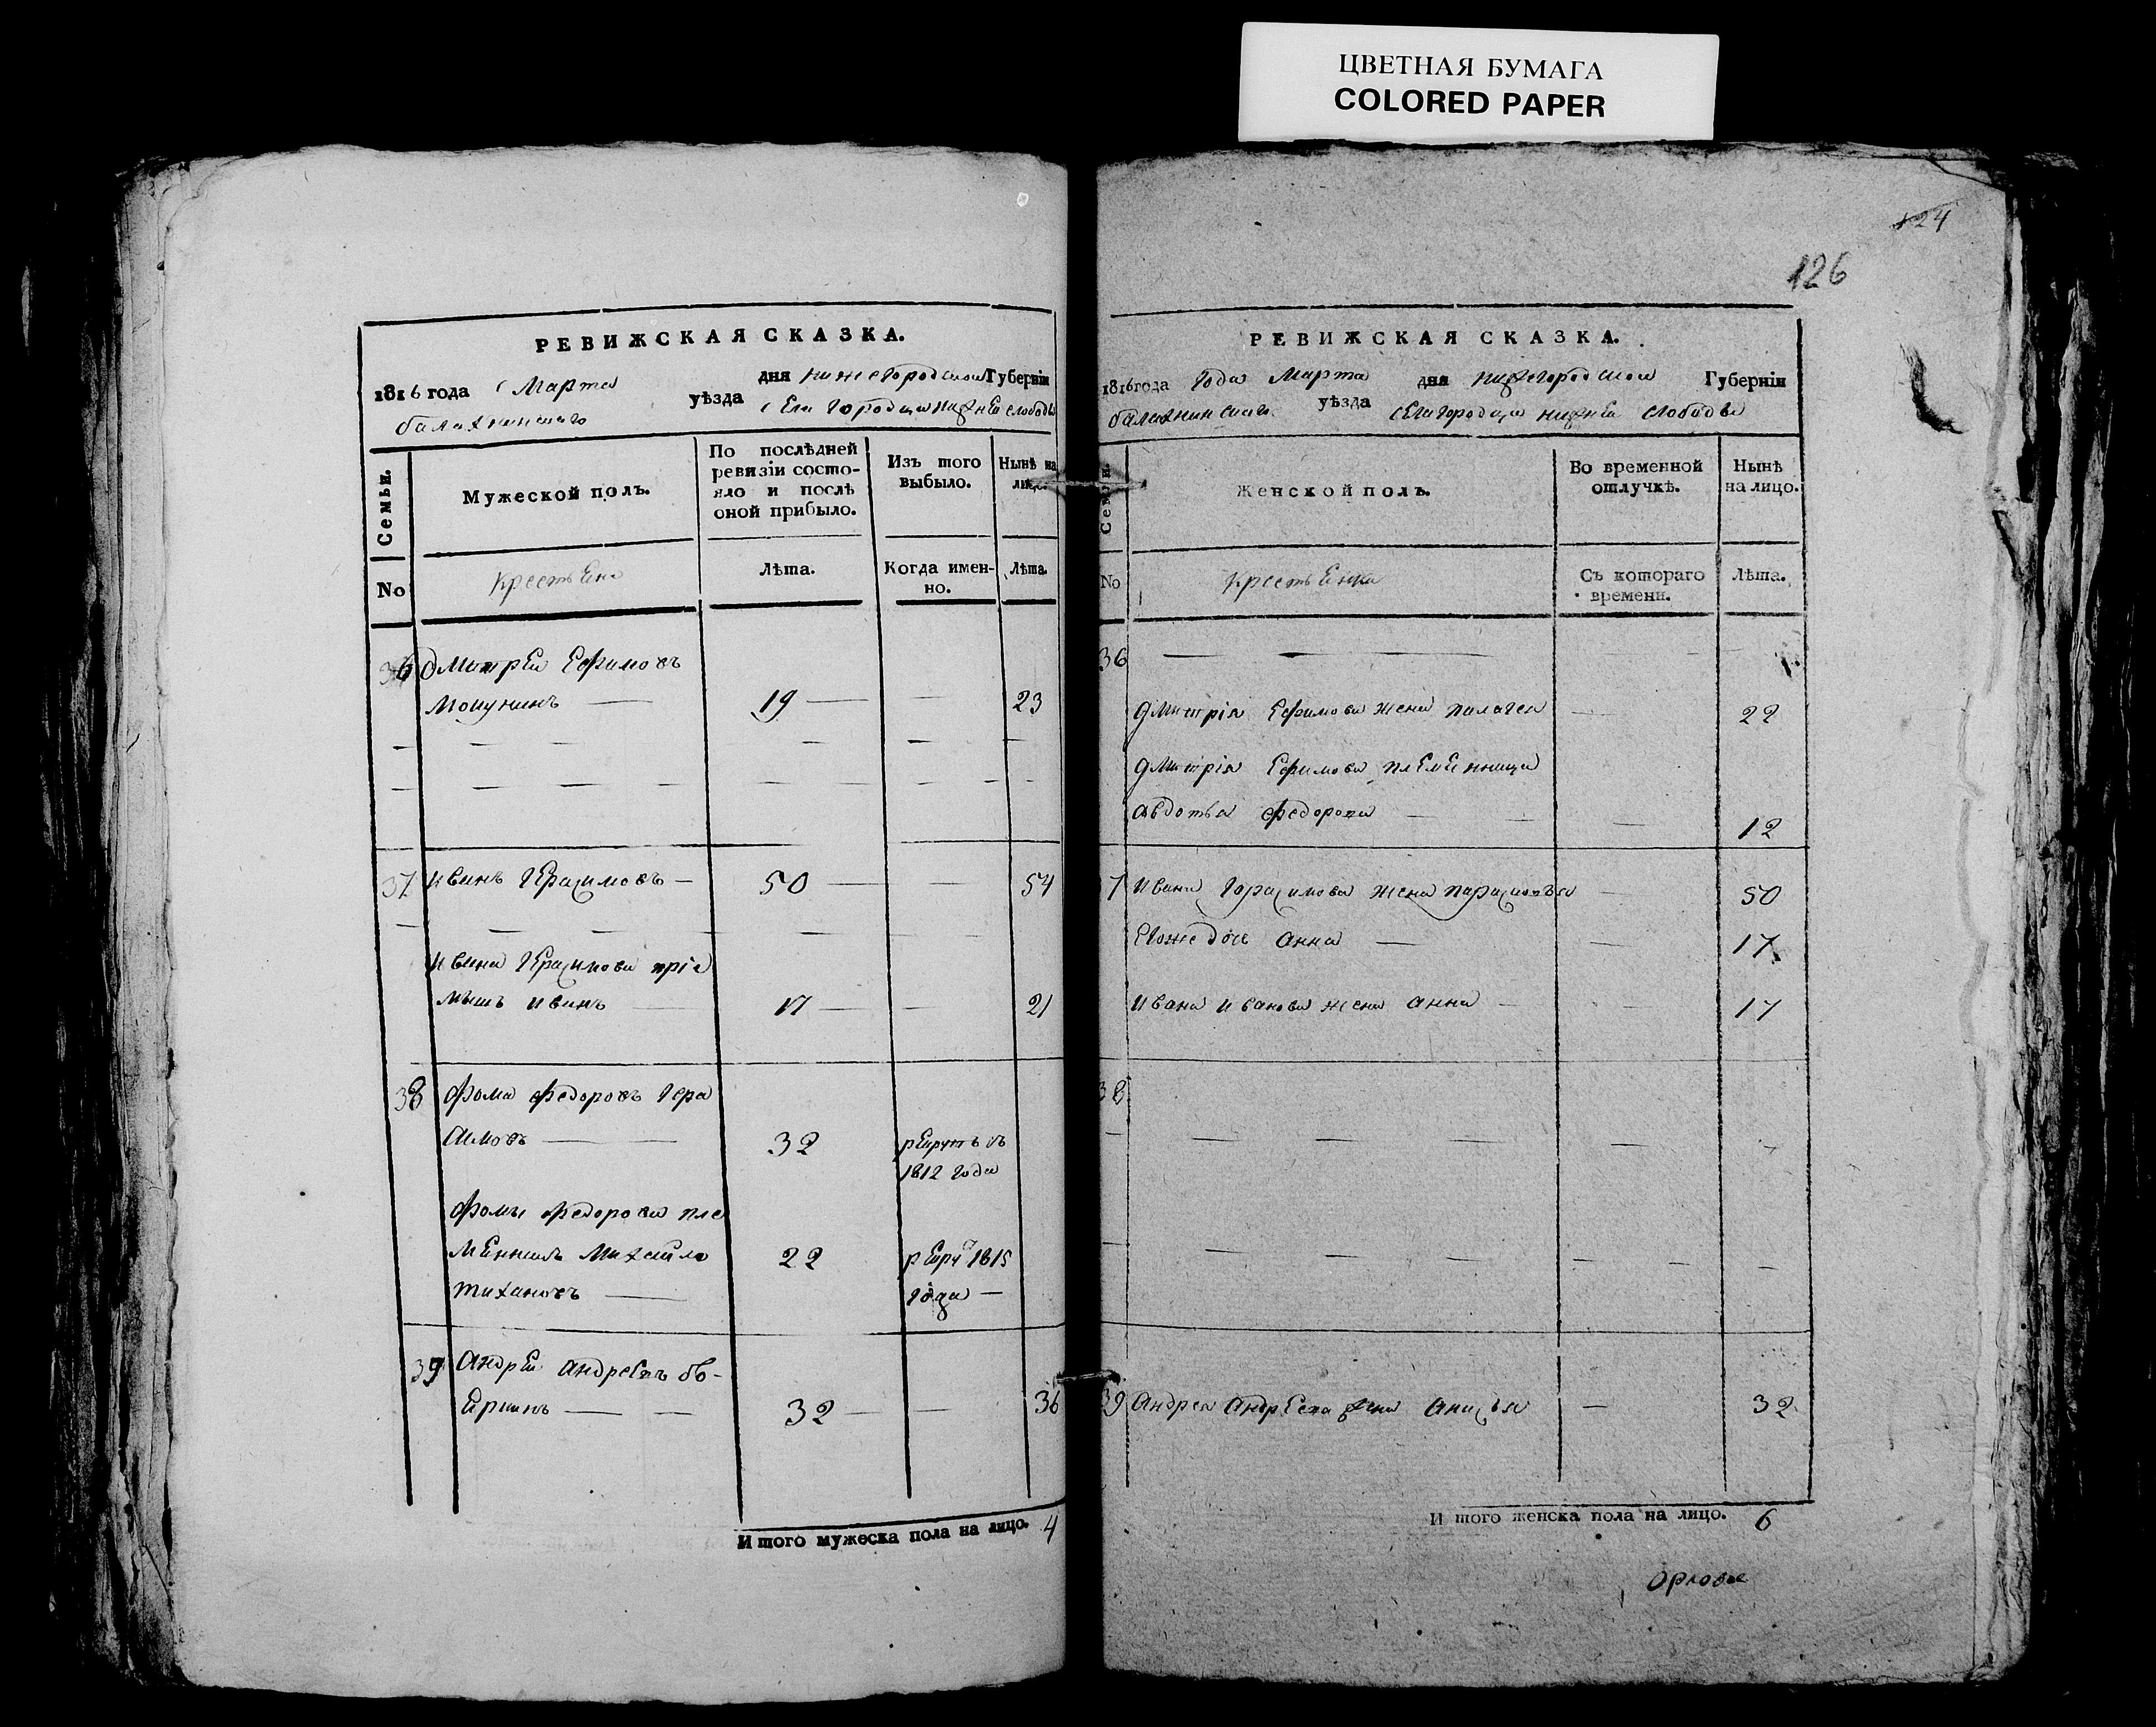 ЦВЕТНАЯ БУМАГА
COLORED PAPER
РЕВИЖСКАЯ СКАЗКА.
1816 года Марта дня нижегородской Губерніи
балахнинскаго уѣзда Села городца нижней слободы
Семьи.
Мужеской полъ.
По послѣдней ревизіи состояло и послѣ оной прибыло.
Изъ того выбыло.
Нынѣ на лицо.
No
крестьяне
Лѣта.
Когда именно.
Лѣта.
36 дмитреи Ефимовъ
19 — — 23
37 иванъ герасимовъ — 50 — — 54
ивана герасимова пріе
мышъ иванъ — 17 — — 21
38 Фома Федоровъ гера
симовъ — — 32 рекрутъ въ
1812 года
Фомы Федорова пле
менникъ михайло 22 рекру 1815
тихановъ — года —
39 Андреи андреевъ
32 — — 36
И того мужеска пола на лицо. 4
124
126
РЕВИЖСКАЯ СКАЗКА.
1816 года года Марта дня нижегородской Губерніи
балахнинскаго уѣзда Села городца нижней слободы
Семьи.
Женской полъ.
Во временной отлучкѣ.
Нынѣ на лицо.
No
крестьянки
Съ котораго времени.
Лѣта.
36
дмитрія Ефимова жена палагея — 22
дмитрія Ефимова племенница
авдотья федорова — — — 12
37 ивана герасимова жена парасковья — 50
Евоже дочь анна — — 17
ивана иванова жена анна — — 17
38
39 андрея андреева жена анисья — 32
И того женска пола на лицо. 6